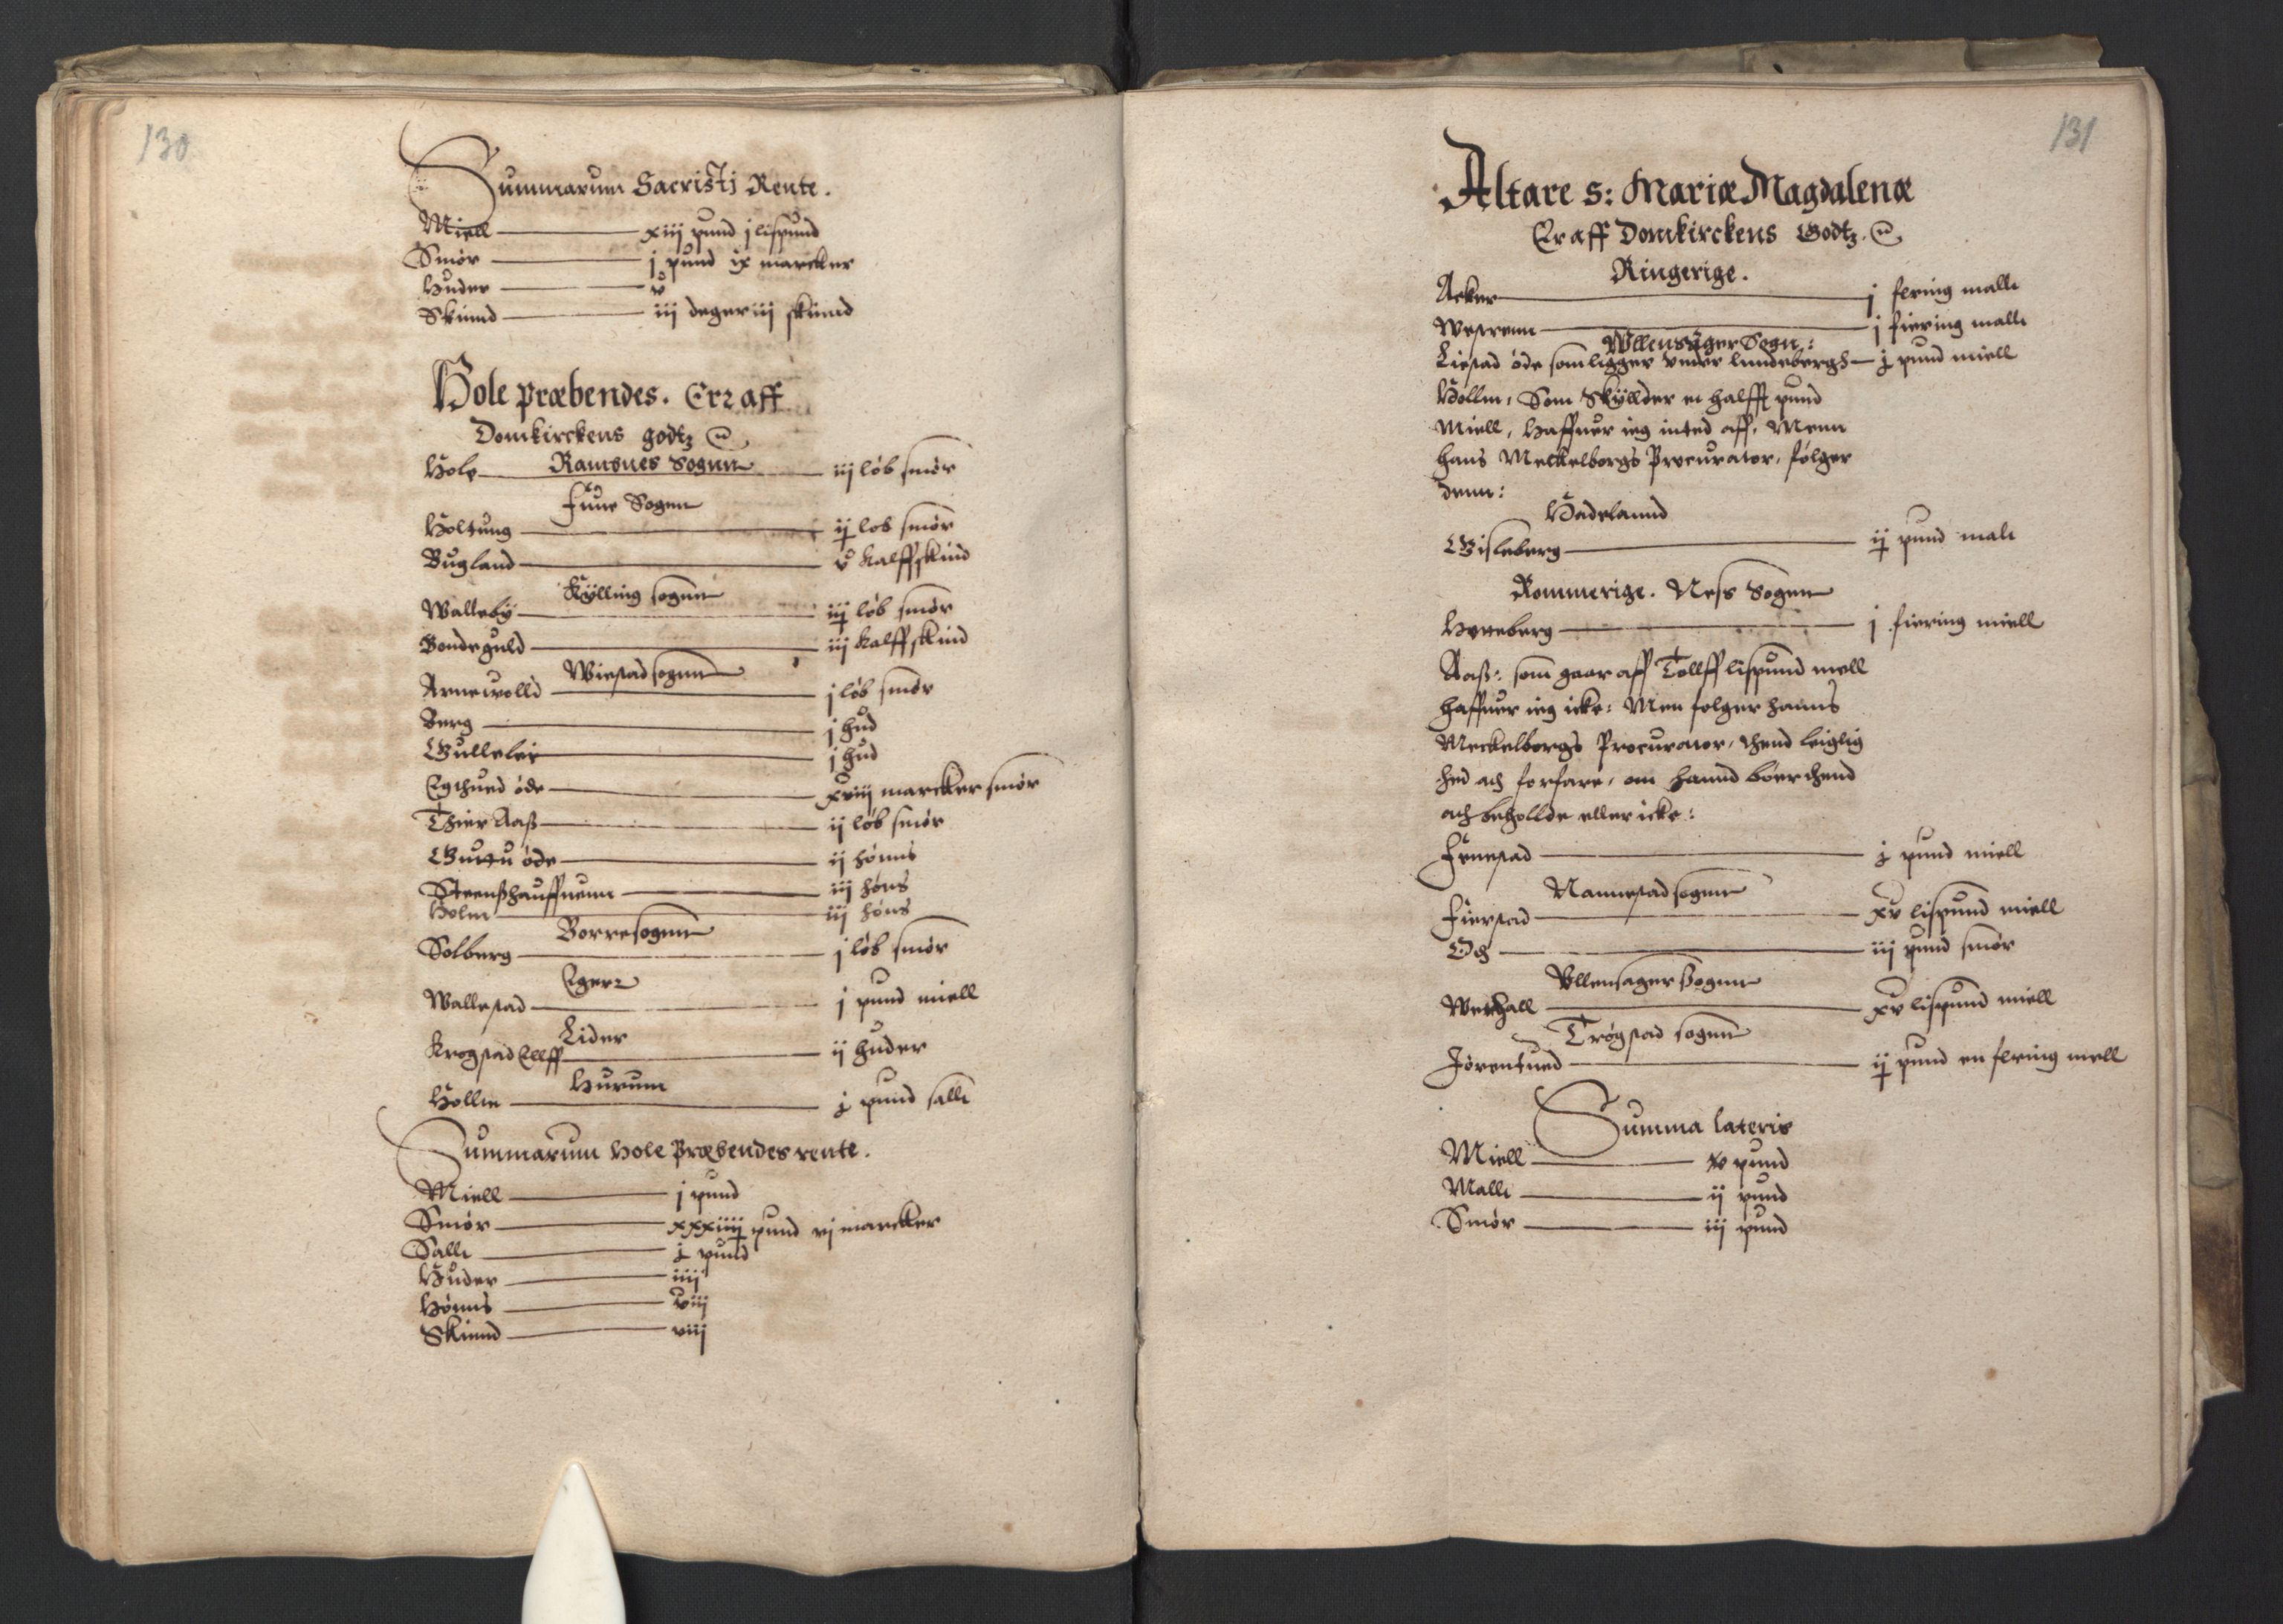 130
Summarum Sacristi Rente.
Miell xiij pund j lispund
Smør j pund ix marcker
Huder v
Skinnd iij deger iij skinnd
Hole præbendes. Err aff
Domkirckens godtz
Ramsnes Sognn
Hole iij løb smør
Fune Sognn
Holtung ij løb smør
Bugland v kalffskind
Kylling sognn
Walleby iij løb smør
Bondeguld iij kalffskind
Wiestad sognn
Arnewolld j løb smør
Berg j hud
Gulleleir j hud
Egthued øde xviij marcker smør
Thier Aaß ij løb smør
øde ij hønns
Steenßhauffnenn iij høns
Holm iij høns
Borre sognn
Solberg j løb smør
Egerr
Wallestad j pund miell
Lider
Krogstad Ellff ij huder
Hurum
Hollm j pund sallt
Summarum Hole Præbendes rente.
Miell j pund
Smør xxxiiij pund vj marcker
Sallt j pund
Huder iiij
Hønns viij
Skinnd viij
131
Altare S: Mariæ Magdalenæ
Er aff Domkirckens Godtz.
Ringerige.
Acker j fering mallt
Westrenn j fiering mallt
Wllensager Sogn:
Liestad øde som ligger vnder Lundebergh j pund miell
Hollm, Som Skyllder en halfft pund
Miell, Haffuer ieg inted aff, Menn
hans Meckelborgs Procurator, følger
denn:
Hadelannd
Gisleberg ij pund malt
Rommerige. Ness Sognn
Hvneberg j fiering miell
Aaß: som gaar aff Tollff lispund mell
haffuer ieg icke: Men følger hanns
Meckelborgs Procurator, thend leiglig
hed ach forfare, om hannd bøer thend
ach behollde eller icke:
Frnestad j pund miell
Nannestad sognn
Fierstad xv lispund miell
Och iij pund smør
Vllensager Sognn
Wethall xv lispund miell
Trøgstad sognn
Jørentued ij pund en fering mell
Summa lateris
Miell xv pund
Mallt ij pund
Smør iij pund